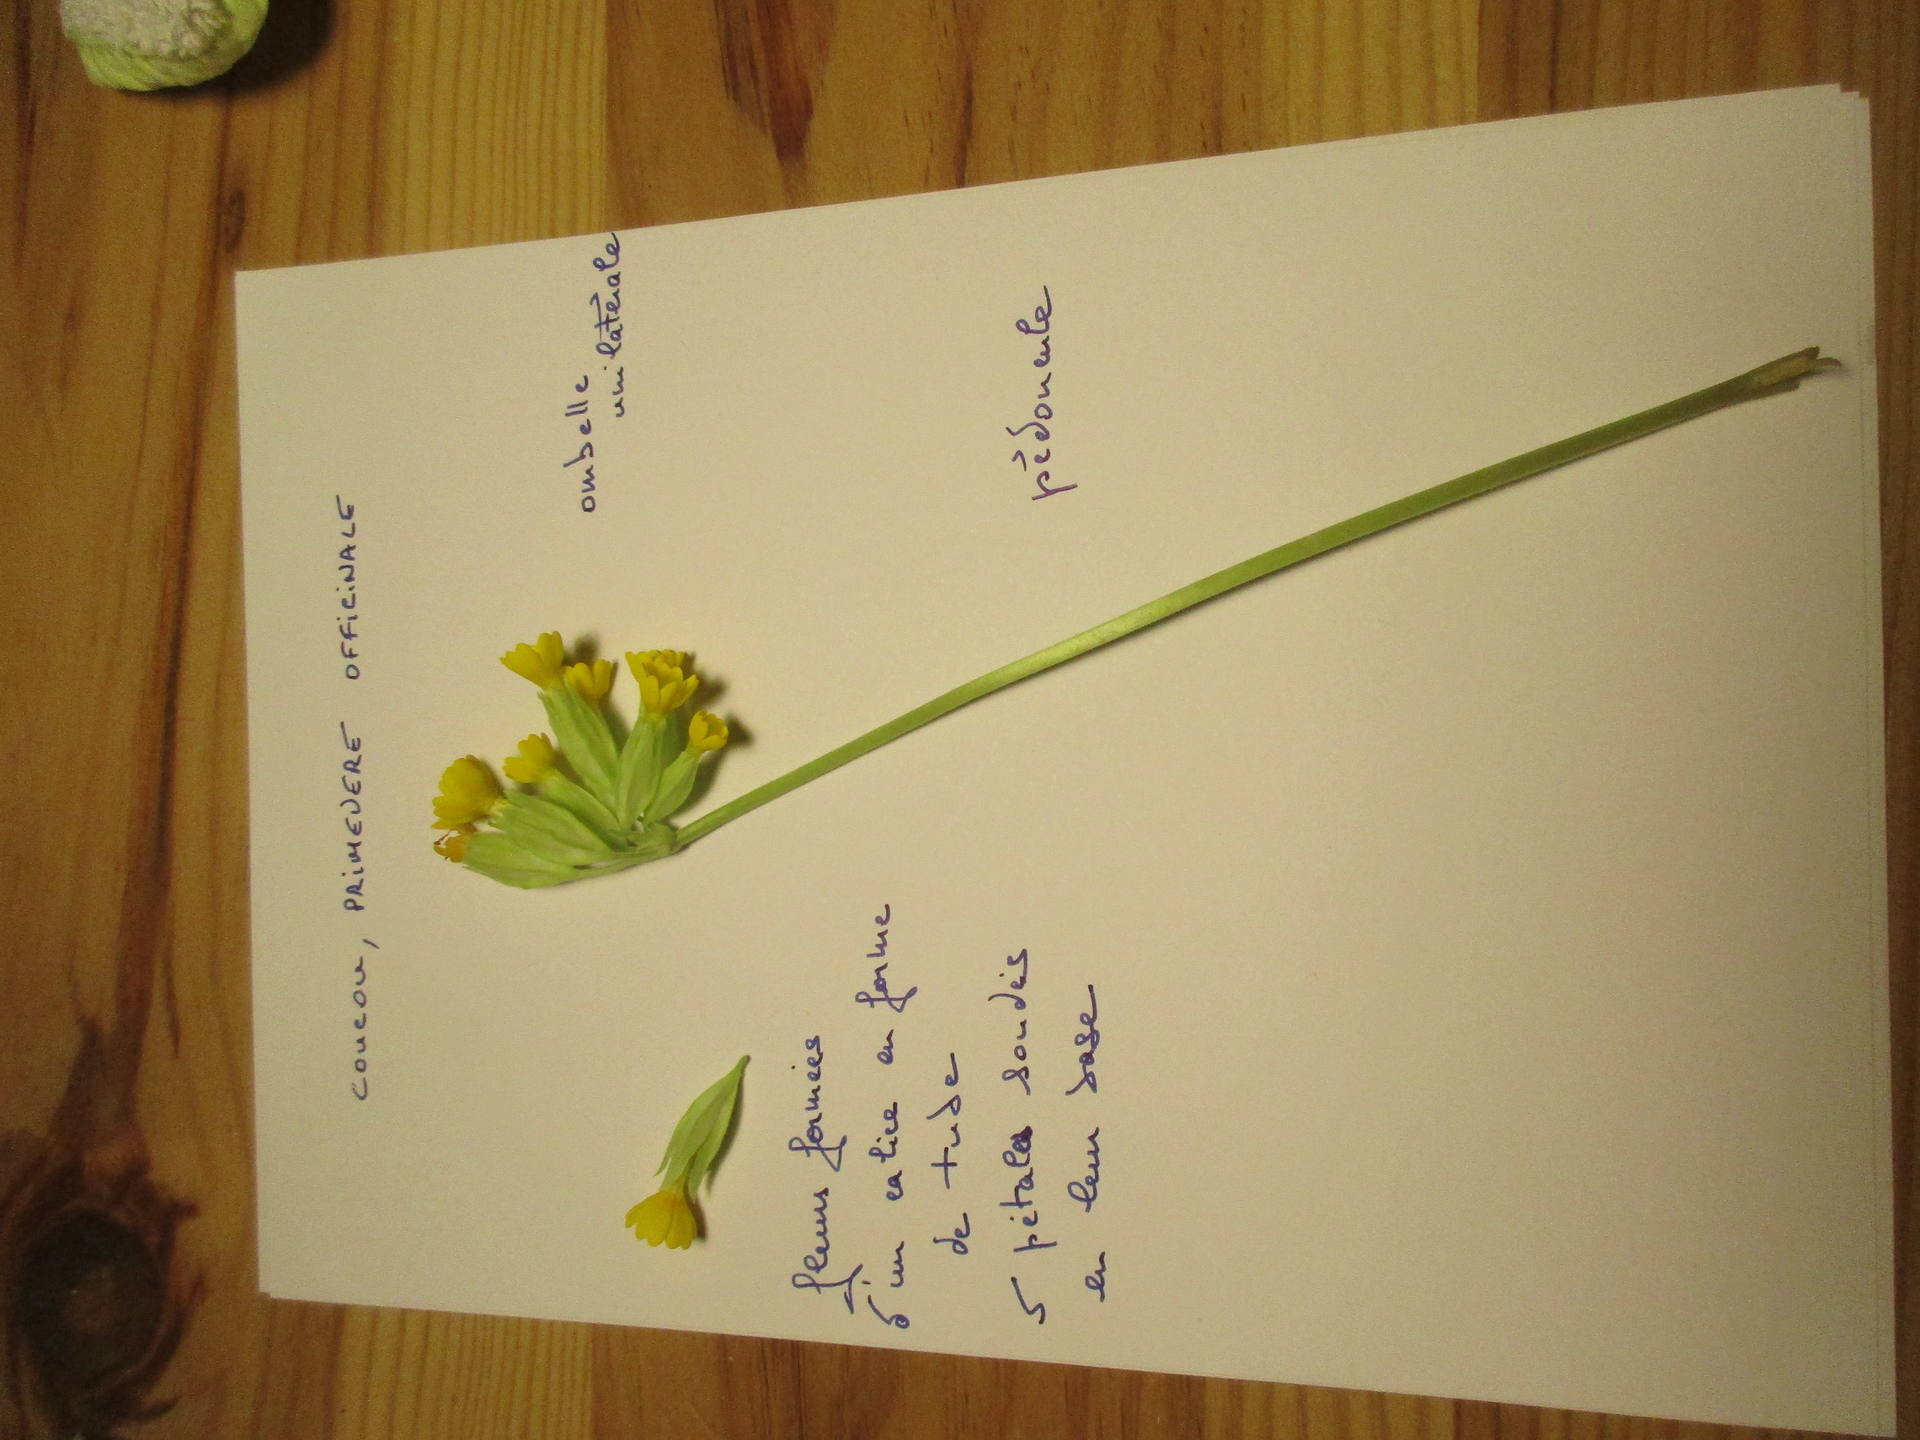 COUCOU, PRIMEVERE OFFICINALE
ombelle
unilatérale
pédoncule
fleurs formées
d'un calice en forme
de tube
5 pétales soudés
en leur base